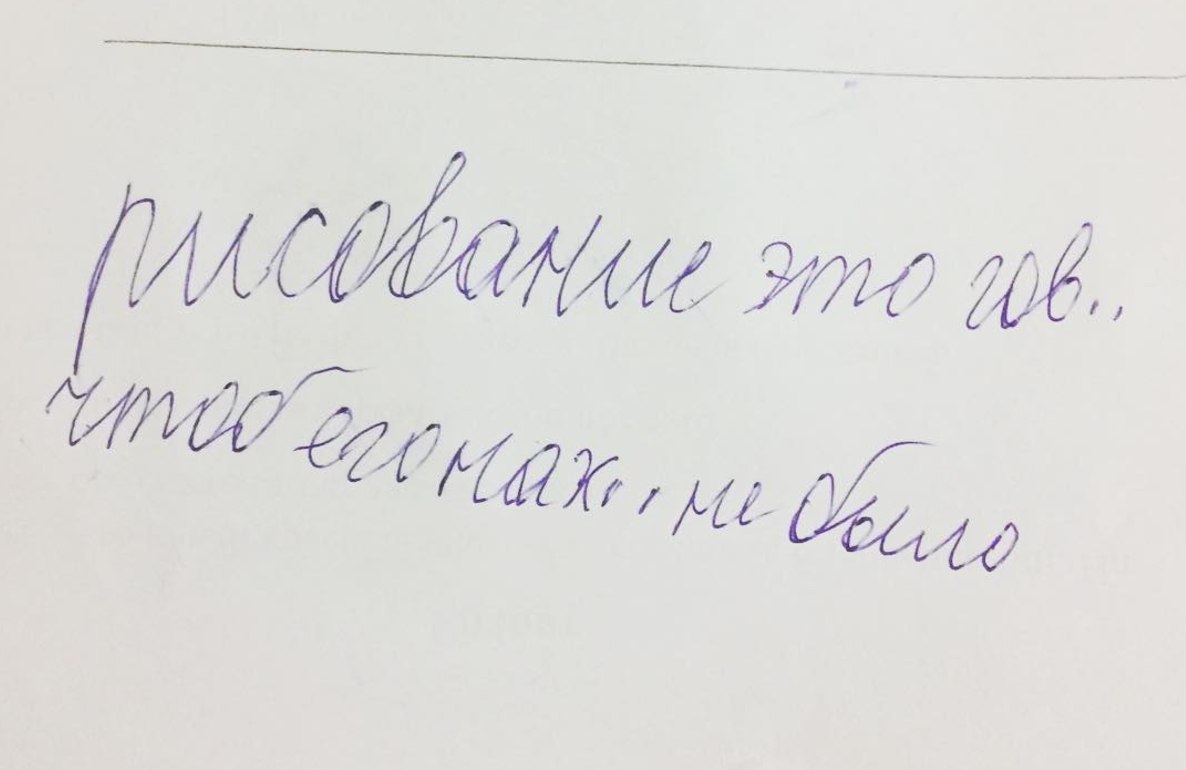 рисование это гов..
чтоб его нах.. не было